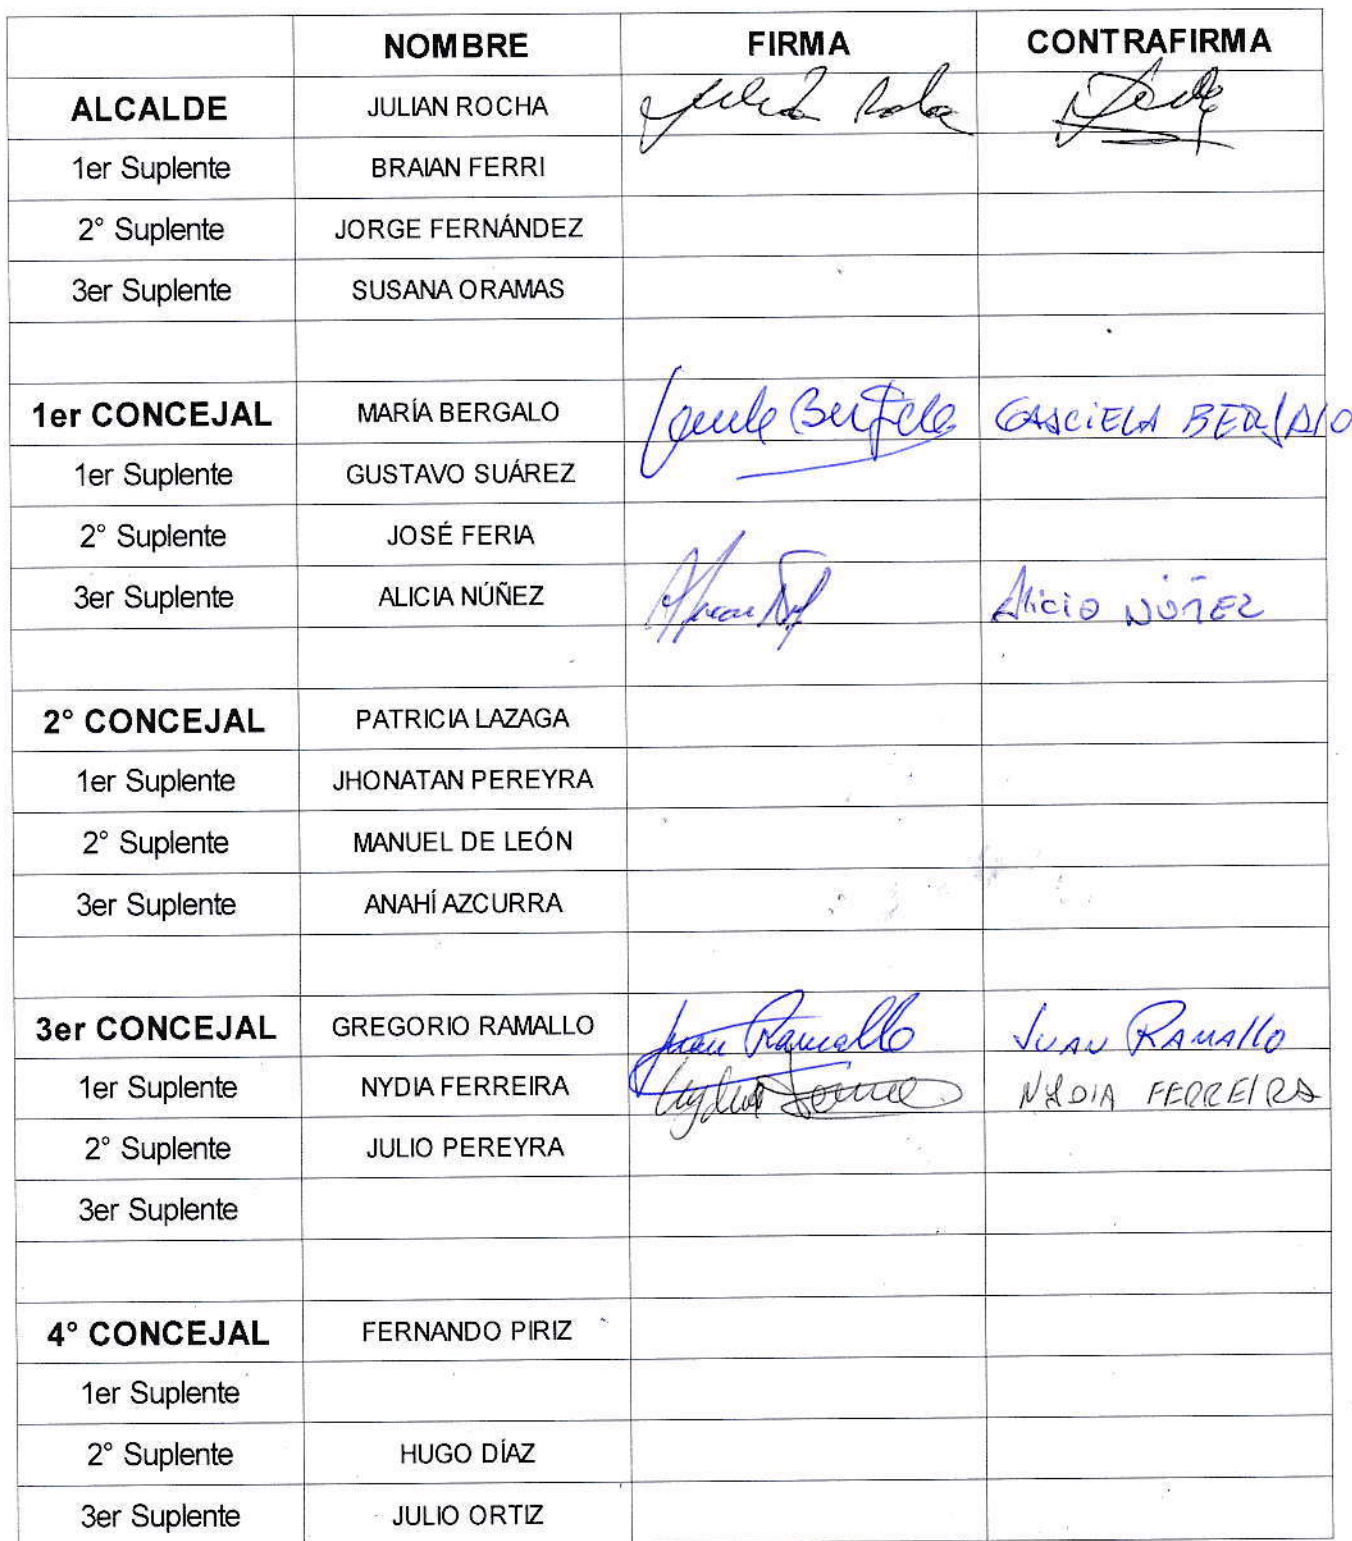 NOMBRE FIRMA CONTRAFIRMA
ALCALDE JULIAN ROCHA Julián Rocha
1er Suplente BRAIAN FERRI
2° Suplente JORGE FERNÁNDEZ
3er Suplente SUSANA ORAMAS
1er CONCEJAL MARÍA BERGALO GRACIELA BERGALO
1er Suplente GUSTAVO SUÁREZ
2° Suplente JOSÉ FERIA
3er Suplente ALICIA NÚÑEZ Alicia NÚÑEZ
2° CONCEJAL PATRICIA LAZAGA
1er Suplente JHONATAN PEREYRA
2° Suplente MANUEL DE LEÓN
3er Suplente ANAHÍ AZCURRA
3er CONCEJAL GREGORIO RAMALLO Juan Ramallo JUAN RAMALLO
1er Suplente NYDIA FERREIRA NYDIA FERREIRA
2° Suplente JULIO PEREYRA
3er Suplente
4° CONCEJAL FERNANDO PIRIZ
1er Suplente
2° Suplente HUGO DÍAZ
3er Suplente JULIO ORTIZ